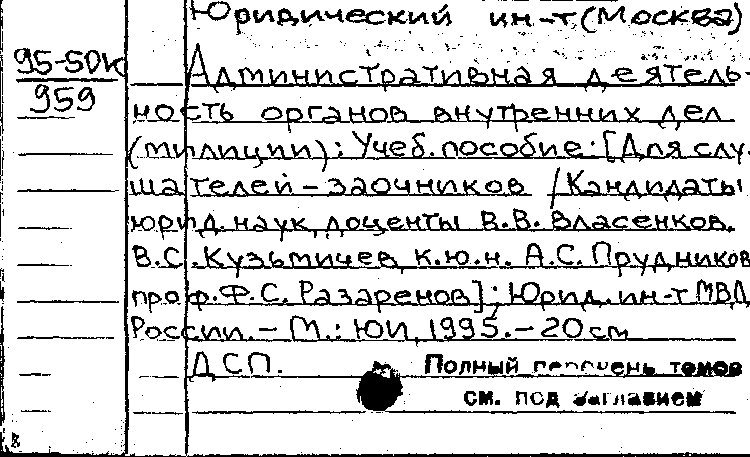 Юридический ин-т (Москва)
95-50к
959
Административная деятель-
ность органов внутренних дел
(милиции): Учеб. пособие: [Для слу-
шателей-заочников / Кандидаты
юрид. наук, доценты В.В. Власенков,
В.С. Кузьмичев, к.ю.н. А.С. Прудников,
проф. Ф.С. Разаренов]; Юрид. ин-т МВД
России. - М.: ЮИ, 1995. - 20 см
ДСП.
Полный перечень томов
см. под заглавием